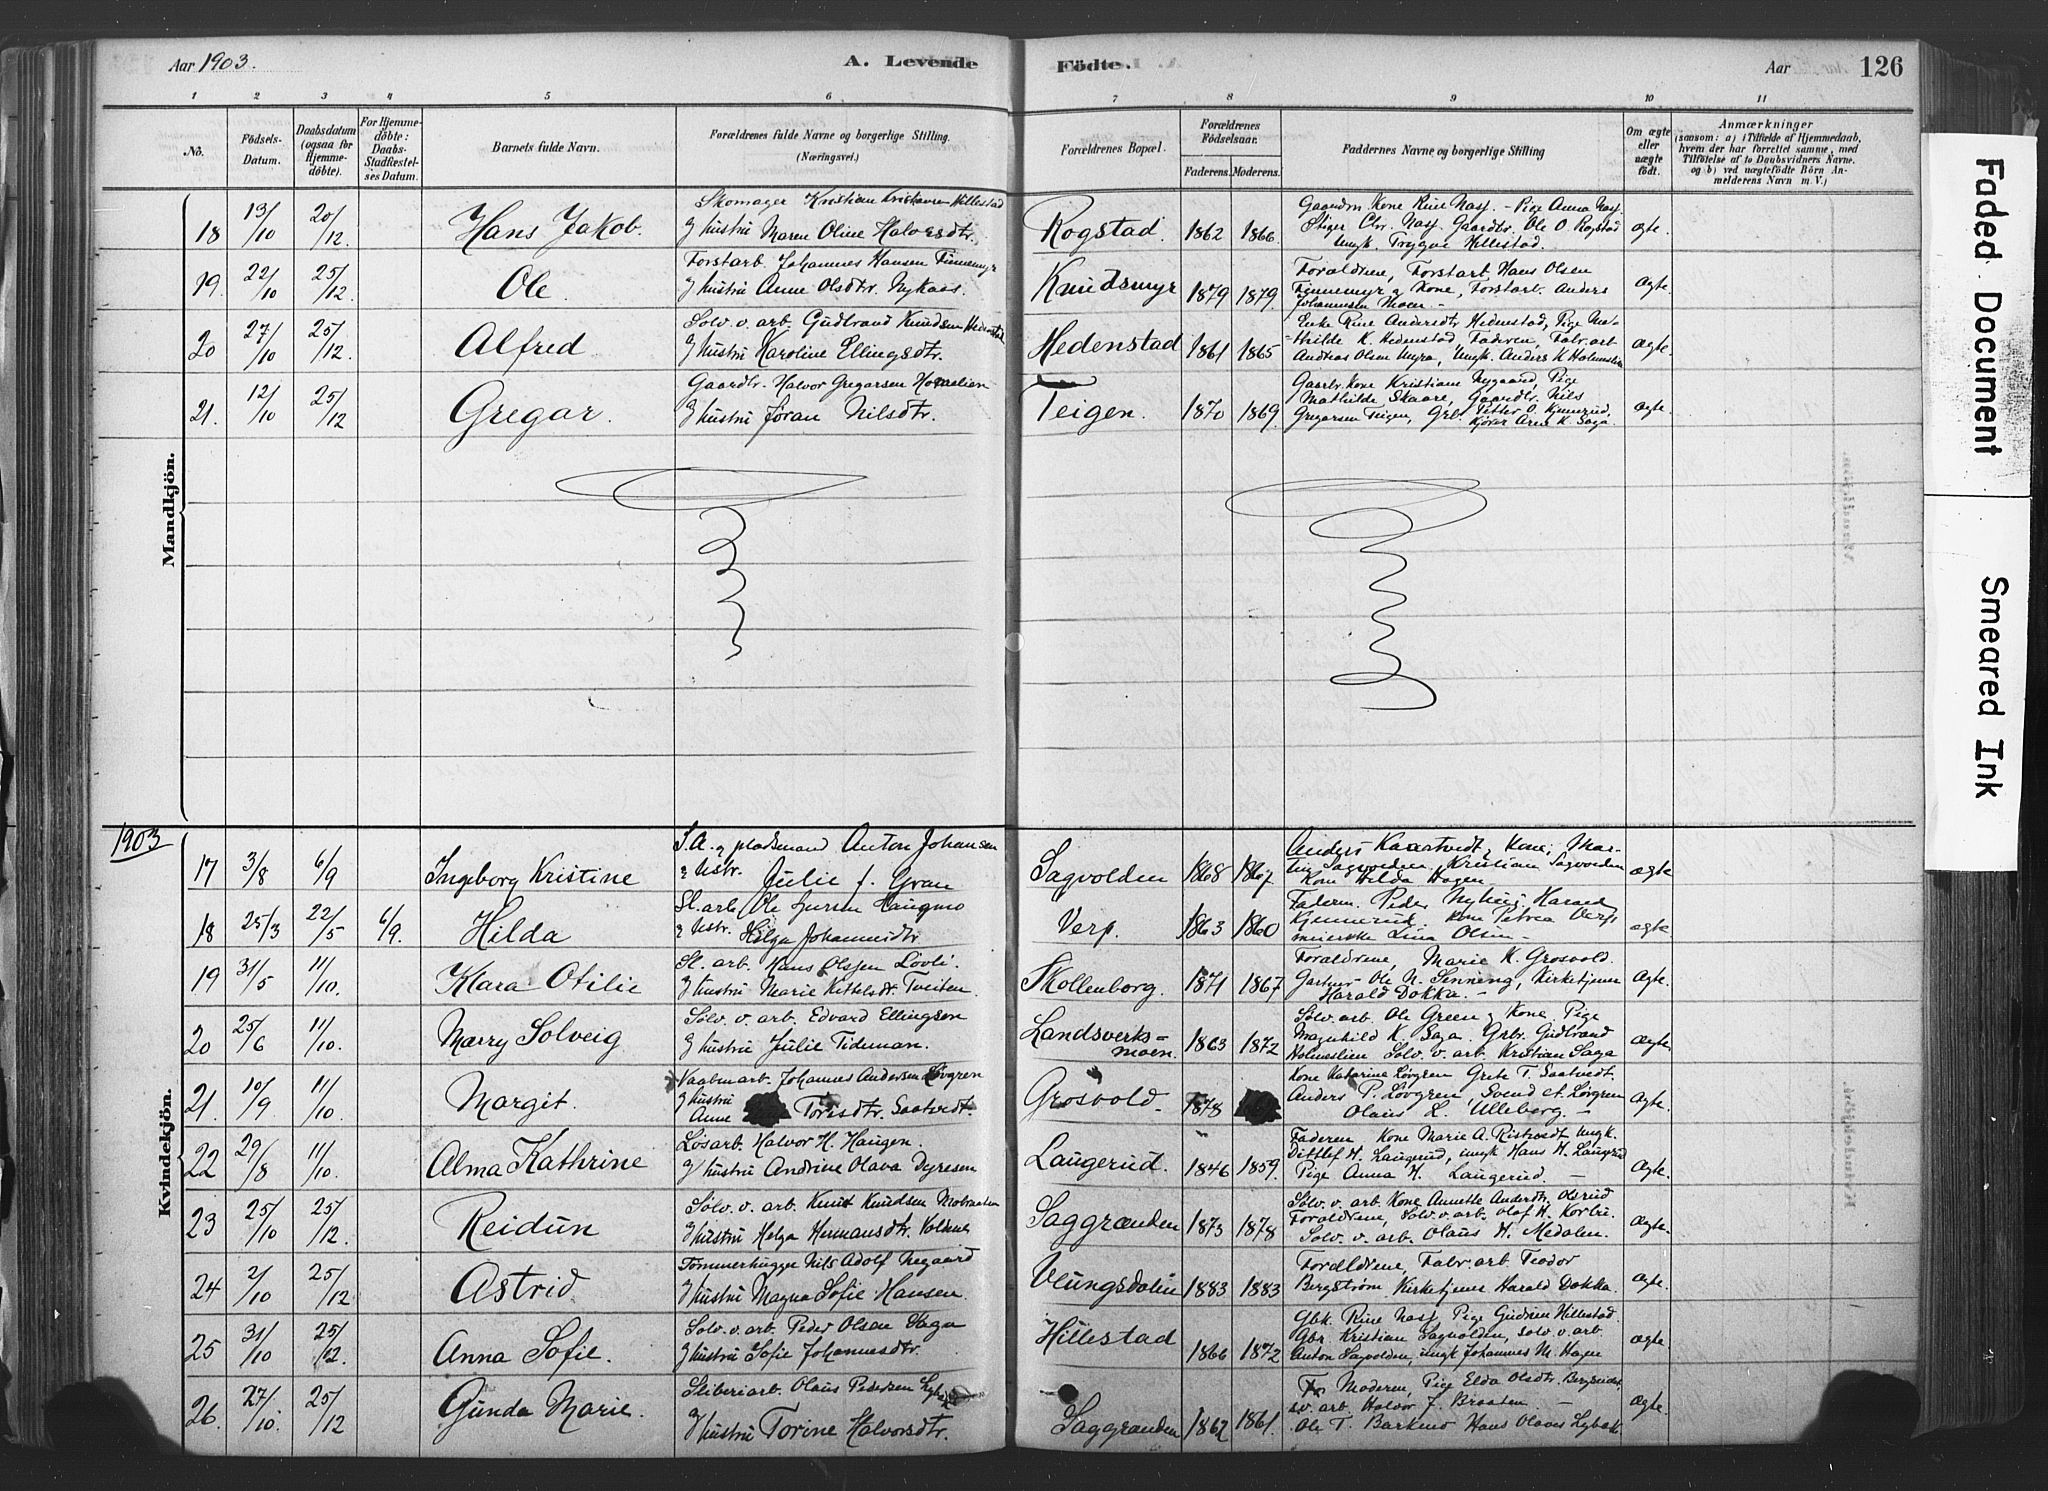 Aar 1903.
A. Levende
Födte.
Aar
126
1 2 3 4 5 6 7 8 9 10 11
No.
Födsels-
Datum.
Daabsdatum
(ogsaa for
Hjemme-
döbte).
For Hjemme-
döbte:
Daabs-
Stadfæstel-
ses Datum.
Barnets fulde Navn.
Forældrenes fulde Navne og borgerlige Stilling.
(Næringsvei.)
Forældrenes Bopæl.
Forældrenes
Födselsaar.
Faderens. Moderens.
Faddernes Navne og borgerlige Stilling
Om ægte
eller
uægte
födt.
Anmærkninger
(saasom: a) i Tilfælde af Hjemmedaab,
hvem der har forrettet samme, med
Tilföielse af to Daabsvidners Navne.
og b) ved uægtefödte Börn An-
melderens Navn m. V.)
Mandkjön.
18 13/10 20/12 Hans Jakob.
Skomager Kristian Hillestad
g hustru Maren Oline Halvorsdtr.
Rogstad. 1862 1866
Gaardm Kone Rine Nasj. - Pige Anna Nasj.
Stiger Chr. Nasj. Gaardbr. Ole O. Rogstad
Ungk. Trygve Hillestad.
ægte.
19. 22/10 25/12 Ole
Forstarb. Johannes Hansen Finnemyr
g hustru Anne Olsdtr. Nykaas.
Knudsmyr 1879 1879
Foraldrene, Forstarb. Hans Olsen
Finnemyr g Kone, Forstarb. Anders
Johannesen Moen -
Ægte.
20 27/10 25/12 Alfred
Sölv. v. arb. Gudbrand Knudsen Hedenstad
g hustru Karoline Ellingsdtr.
Hedenstad 1861 1865
Enke Rine Andersdtr Hedenstad, Pige Ma-
thilde K. Hedenstad Faderen, Fabr. arb
Andreas Olsen Myra, Ungk. Anders K Holmeslien
Ægte.
21. 12/10 25/12 Gregar.
Gaardbr. Halvor Gregersen Homelien
g hustru Jøran Nilsdtr.
Teigen. 1870 1869.
Gaarbr. Kone Kristiane Nygaard, Pige
Mathilde Skaare, Gaardbr. Nils
Gregersen Teigen, Grbr. Petter O. Kjennerud,
Kjører Arne K. Saga.
ægte
1903
Kvindekjön.
17 3/8 6/9 Ingeborg Kristine
S.A. g pladsmand Anton Johansen
g Hstr. Julie f. Gran
Sagvolden 1868 1867
Anders Kaartvedt g Kone, Mar-
tin Sagvolden, Kristian Sagvolden
Kone Hilda Hagen
ægte
18 25/3 22/5 6/9. Hilda
Sl. arb Ole Haugmo
g Hstr. Helga Johannesdtr
Verp. 1863 1860
Faderen. Peder Nyhus, Harald
Kjennerud. Kone Petrea Verp
meierske Lina Olsen
ægte
19 31/5 11/10. Klara Otilie
Sl. arb. Hans Olsen Lövli
g hustru Marie Kittelsdtr. Tveiten.
Skollenborg. 1871 1867
Foraldrene, Marie K. Grosvold.
Gartner Ole N. Senning, Kirketjener
Harald Dokka. -
Ægte.
20 25/6 11/10. Marry Solveig
Sölv. v. arb. Edvard Ellingsen
g hustru Julie Tideman.
Landsverks-
moen. 1863 1872
Sölv. arb. Ole Green g Kone. Pige
Magnhild K. Saga. Grbr. Gudbrand
Holmeslien Sölv. v. arb. Kristian Saga
Ægte.
21. 10/9 11/10. Margit.
Vaabenarb. Johannes Andersen Løvgren
g hustru
Anne Torisdtr. Saatvedt.
Grosvold. 1878
Kone Katarine Løvgren Grete T. Saatvedt.
Anders P. Løvgren, Svend A. Løvgren
Olaus L. Ulleberg. -
Ægte.
22 29/8 11/10. Alma Kathrine
Løsarb. Halvor H. Haugen.
g hustru Andrine Olava Dyresen
Laugerud. 1846 1859.
Faderen Kone Marie A. Ristvedt Ungk.
Dittlef H. Laugerud, ungk Hans H. Laugerud
Pige Anna H. Laugerud. -
Ægte.
23 25/10 25/12. Reidun
Sölv. v. arb. Knut Knudsen Mobraaten
g hustru Helga Hermansdtr. Voldene
Saggrænden 1873 1878
Sölv. v. arb. Kone Annette Andersdtr. Olsrud
Foraldrene, Sölv. v. arb. Olaf H. Korbu.
Sölv. v. arb. Olaus H. Medalen.
Ægte.
24 2/10 25/12 Astrid
Tømmerhugger Nils Adolf Negaard
g hustru Magna Sofie Hansen.
Vlungsdalen 1883 1883
Foraldrene, Fabr. arb. Teodor
Bergström Kirketjener Harald Dokka.
Ægte.
25 31/10 25/12. Anna Sofie.
Sölv. v. arb. Peder Olsen Saga
g hustru Sofie Johannesdtr.
Hillestad 1866 1872
Gbk. Rine Nasj. Pige Gudrun Hillestad.
Gbr. Kristian Sagvolden, sölv. v. arb.
Anton Sagvolden, ungk Johannes M. Hagen
Ægte.
26. 27/10. 25/12 Gunda Marie.
Sliberiarb. Olaus Pedersen
g hustru Torine Halvorsdtr.
Saggrænden 1862 1861.
Moderen, Pige Elda Olsdtr.
sv. arb. Halvor J. Braaten. -
Ole T. Barkmo Hans Olaves Lybæk
Ægte.
Faded Document
Smeared Ink